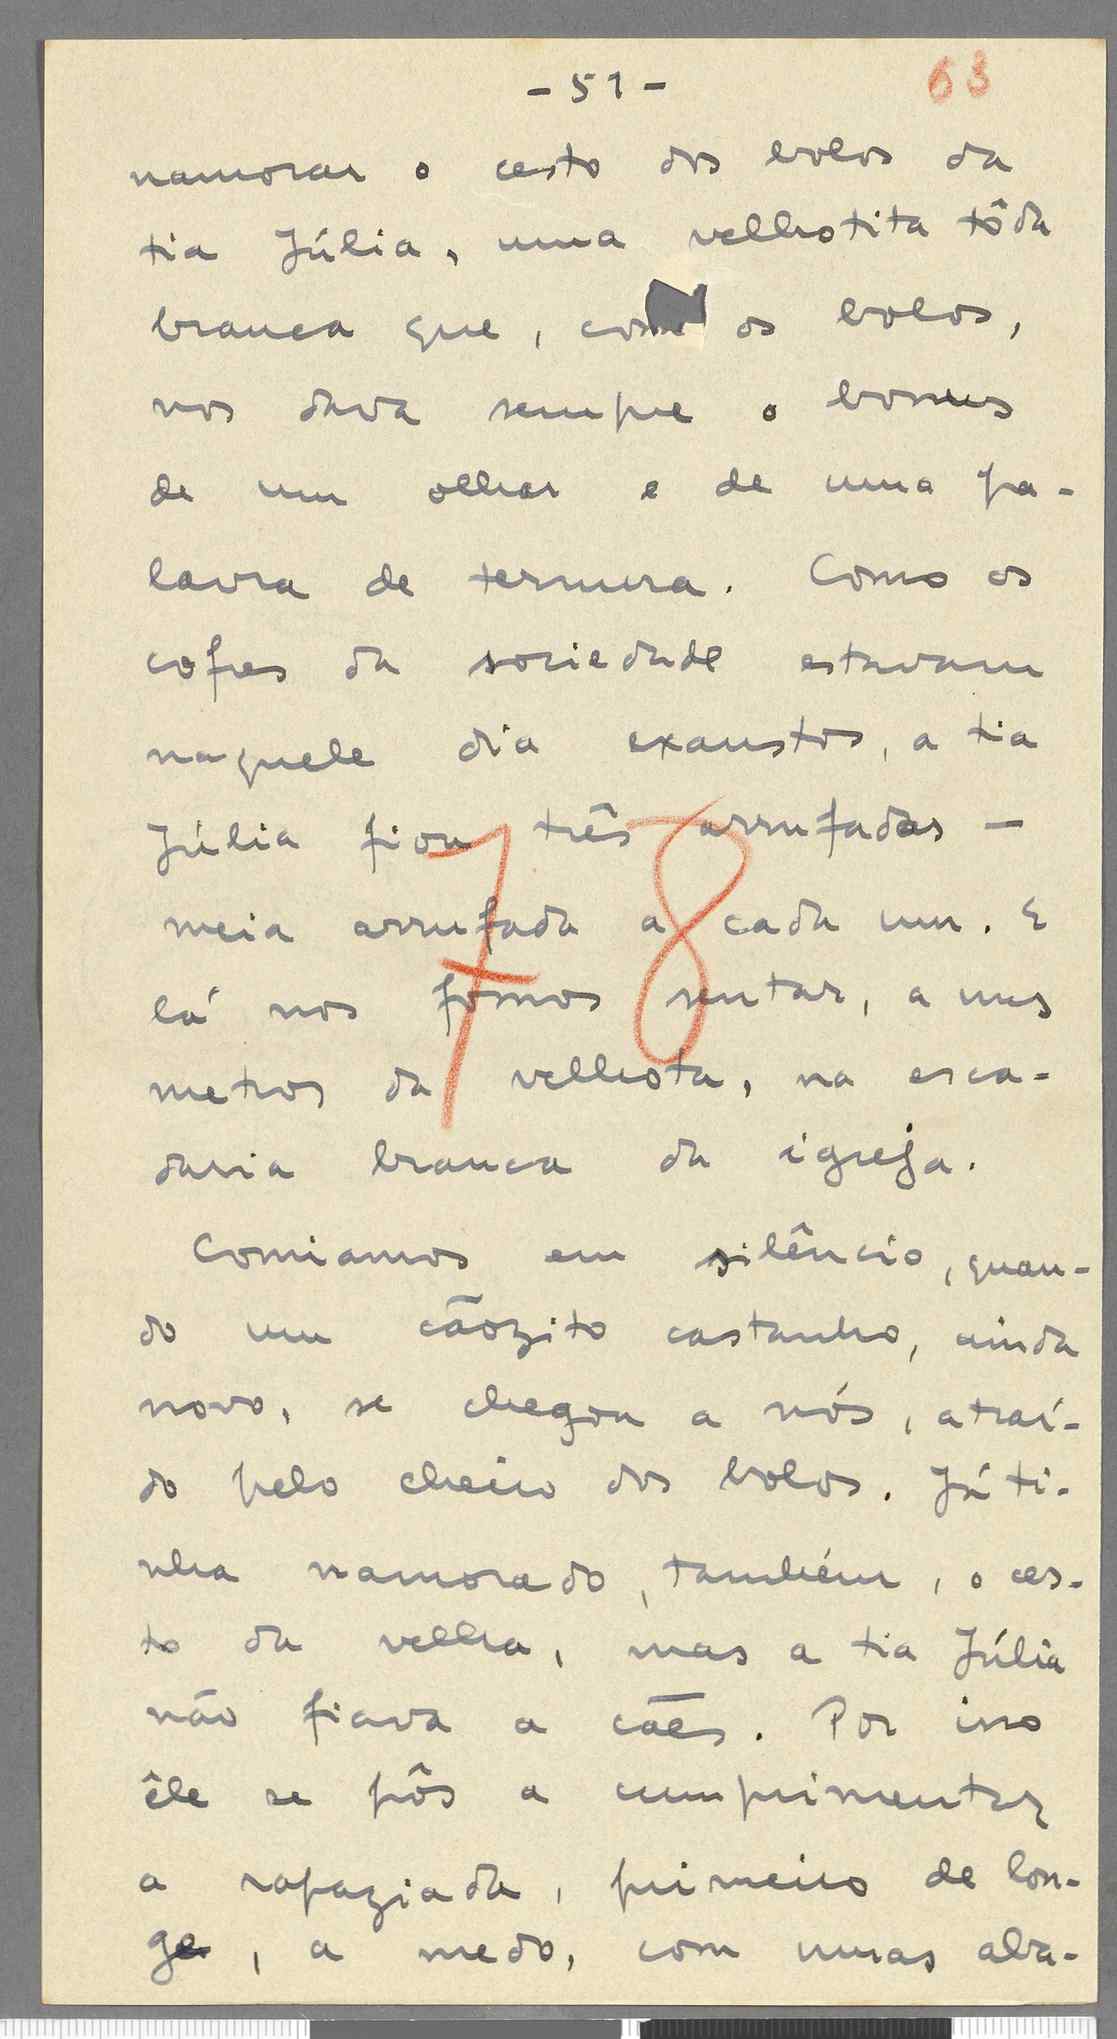 - 51 -
63
namorar o cesto dos bolos da
tia Júlia, uma velhotita tôda
branca que, com os bolos,
nos dava sempre o bonus
de um olhar e de uma pa-
lavra de ternura. Como os
cofres da sociedade estavam
naquele dia exaustos, a tia
Júlia fiou três arrufadas —
meia arrufada a cada um. E
lá nos fomos sentar, a uns
metros da velhota, na esca-
daria branca da igreja.
78
Comiamos em silêncio, quan-
do um cãozito castanho, ainda
novo, se chegou a nós, atraí-
do pelo cheiro dos bolos. Já ti-
nha namorado, também, o ces-
to da velha, mas a tia Júlia
não fiava a cães. Por isso
êle se pôs a cumprimentar
a rapaziada, primeiro de lon-
ge, a medo, com umas aba-